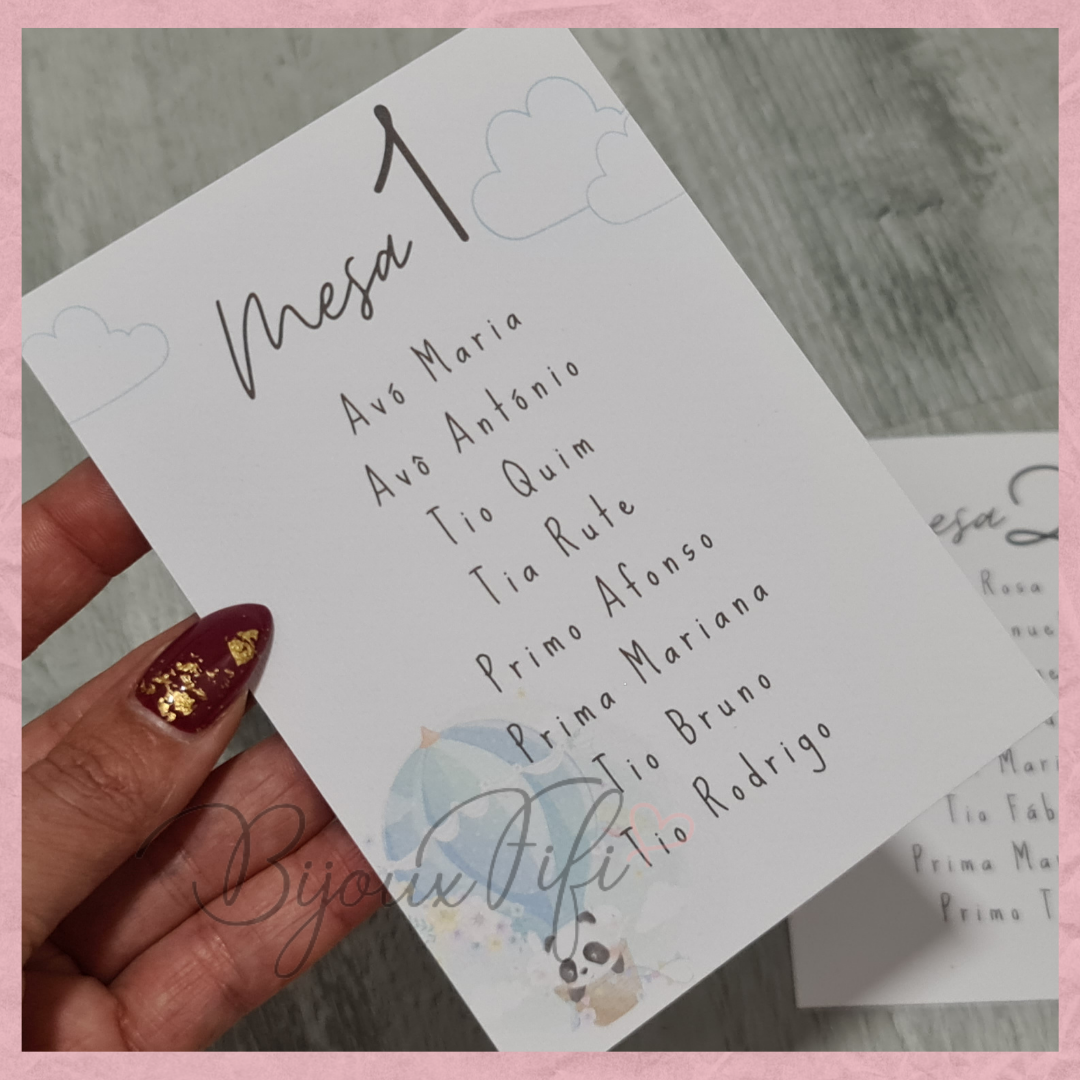 Mesa 1
Avó Maria
Avô António
Tio Quim
Tia Rute
Primo Afonso
Prima Mariana
Tio Bruno
Tio Rodrigo
BijouxFifi
2
Rosa
Tio
Prima
Primo